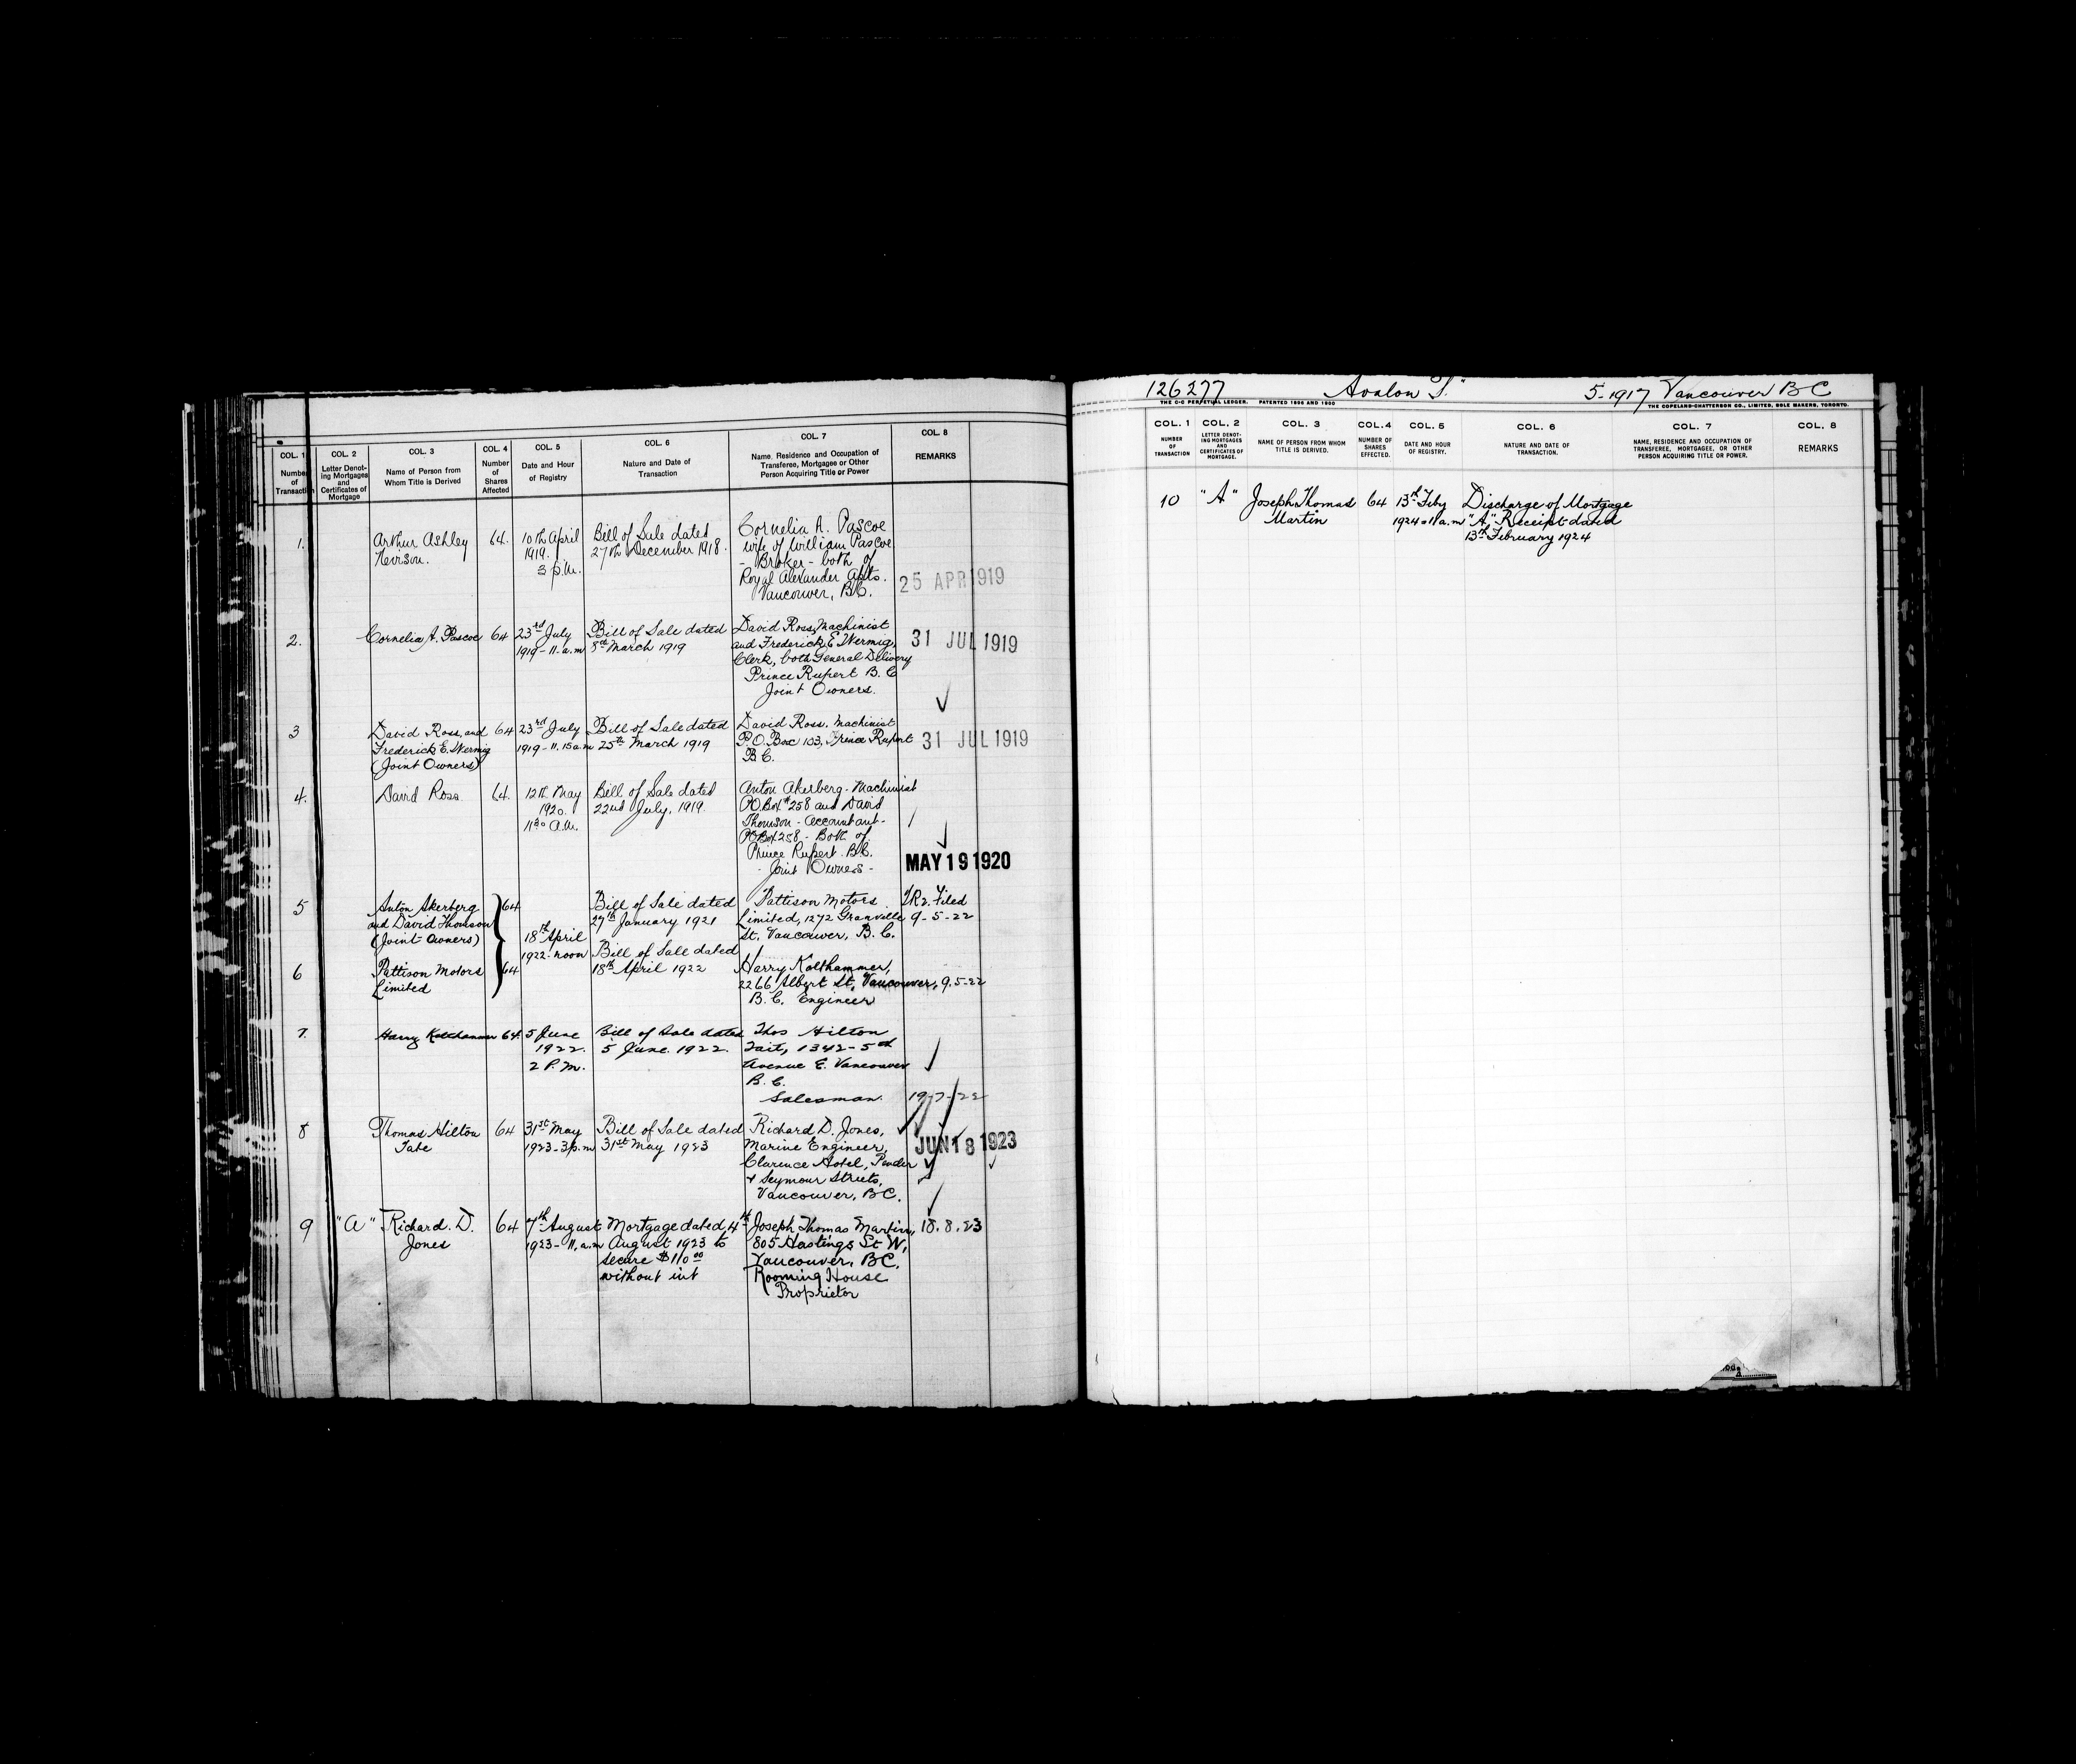 COL. 1
Number
of
Transaction
COL. 2
Letter Denot-
ing Mortgages
and
Certificates of
Mortgage
COL. 3
Name of Person from
Whom Title is Derived
COL. 4
Number
of
Shares
Affected
COL. 5
Date and Hour
of Registry
COL. 6
Nature and Date of
Transaction
COL. 7
Name, Residence and Occupation of
Transferee, Mortgagee or Other
Person Acquiring Title or Power
COL. 8
REMARKS
1.
Arthur Ashley
Nevison.
64.
10th April
1919.
3 p.m.
Bill of Sale dated
27th December 1918.
Cornelia A. Pascoe
wife of William Pascoe
- Broker - both of
Royal Alexander Apts.
Vancouver, B.C.
25 APR 1919
2.
Cornelia A. Pascoe
64
23rd July
1919 - 11. a.m
Bill of Sale dated
8th March 1919
David Ross, Machinist
and Frederick E. Wermig,
Clerk, both General Delivery
Prince Rupert B. C
Joint Owners.
31 JUL 1919
3
David Ross, and
Frederick E. Wermig
(Joint Owners)
64
23rd July
1919 - 11.15 a.m
Bill of Sale dated
25th March 1919
David Ross. Machinist
P.O. Box 103, Prince Rupert
B.C.
31 JUL 1919
4.
David Ross
64.
12th May
1920.
11 30 a.m.
Bill of Sale dated
22nd July, 1919.
Anton Akerberg - Machinist
P.O. Box #258 and David
Thomson - Accountant -
P.O. Box 258 - Both of
Prince Rupert. B.C.
- Joint Owners -
MAY 19 1920
5
Anton Akerberg
and David Thomson
(Joint Owners)
64
18th April
1922. noon
Bill of Sale dated
27th January 1921
Pattison Motors
Limited, 1272 Granville
St, Vancouver, B. C.
Filed
9-5-22
6
Pattison Motors
Limited
64
Bill of Sale dated
18th April 1922
Harry Kolthammer,
2266 Albert St, Vancouver,
B. C. Engineer
9.5-22
7.
Harry Kolthammer
64.
5 June
1922.
2 P.m.
Bill of Sale dated
5 June. 1922.
Thos Hilton
Tait, 1342 - 5th
Avenue E. Vancouver
B. C.
Salesman.
19-7-22
8
Thomas Hilton
Tate
64
31st May
1923 - 3 p.m
Bill of Sale dated
31st May 1923
Richard D. Jones,
Marine Engineer,
Clarence Hotel, Pender
& Seymour Streets,
Vancouver, B.C.
JUN 18 1923
9
"A"
Richard. D.
Jones
64
7th August
1923 - 11. a.m
Mortgage dated 4th
August 1923 to
secure $110 00
without int
Joseph Thomas Martin,
805 Hastings St W,
Vancouver, BC.
Rooming House
Proprietor
18.8.23
126277
Avalon S."
5-1917 Vancouver B C
THE C-C PERPETUAL LEDGER. PATENTED 1896 AND 1900
THE COPELAND-CHATTERSON CO., LIMITED, SOLE MAKERS, TORONTO.
COL. 1
NUMBER
OF
TRANSACTION
COL. 2
LETTER DENOT-
ING MORTGAGES
AND
CERTIFICATES OF
MORTGAGE.
COL. 3
NAME OF PERSON FROM WHOM
TITLE IS DERIVED.
COL.4
NUMBER OF
SHARES
EFFECTED.
COL. 5
DATE AND HOUR
OF REGISTRY.
COL. 6
NATURE AND DATE OF
TRANSACTION.
COL. 7
NAME, RESIDENCE AND OCCUPATION OF
TRANSFEREE, MORTGAGEE, OR OTHER
PERSON ACQUIRING TITLE OR POWER.
COL. 8
REMARKS
10
"A"
Joseph Thomas
Martin
64
13th Feby
1924 - 11 a.m
Discharge of Mortgage
"A," Receipt dated
13th February 1924